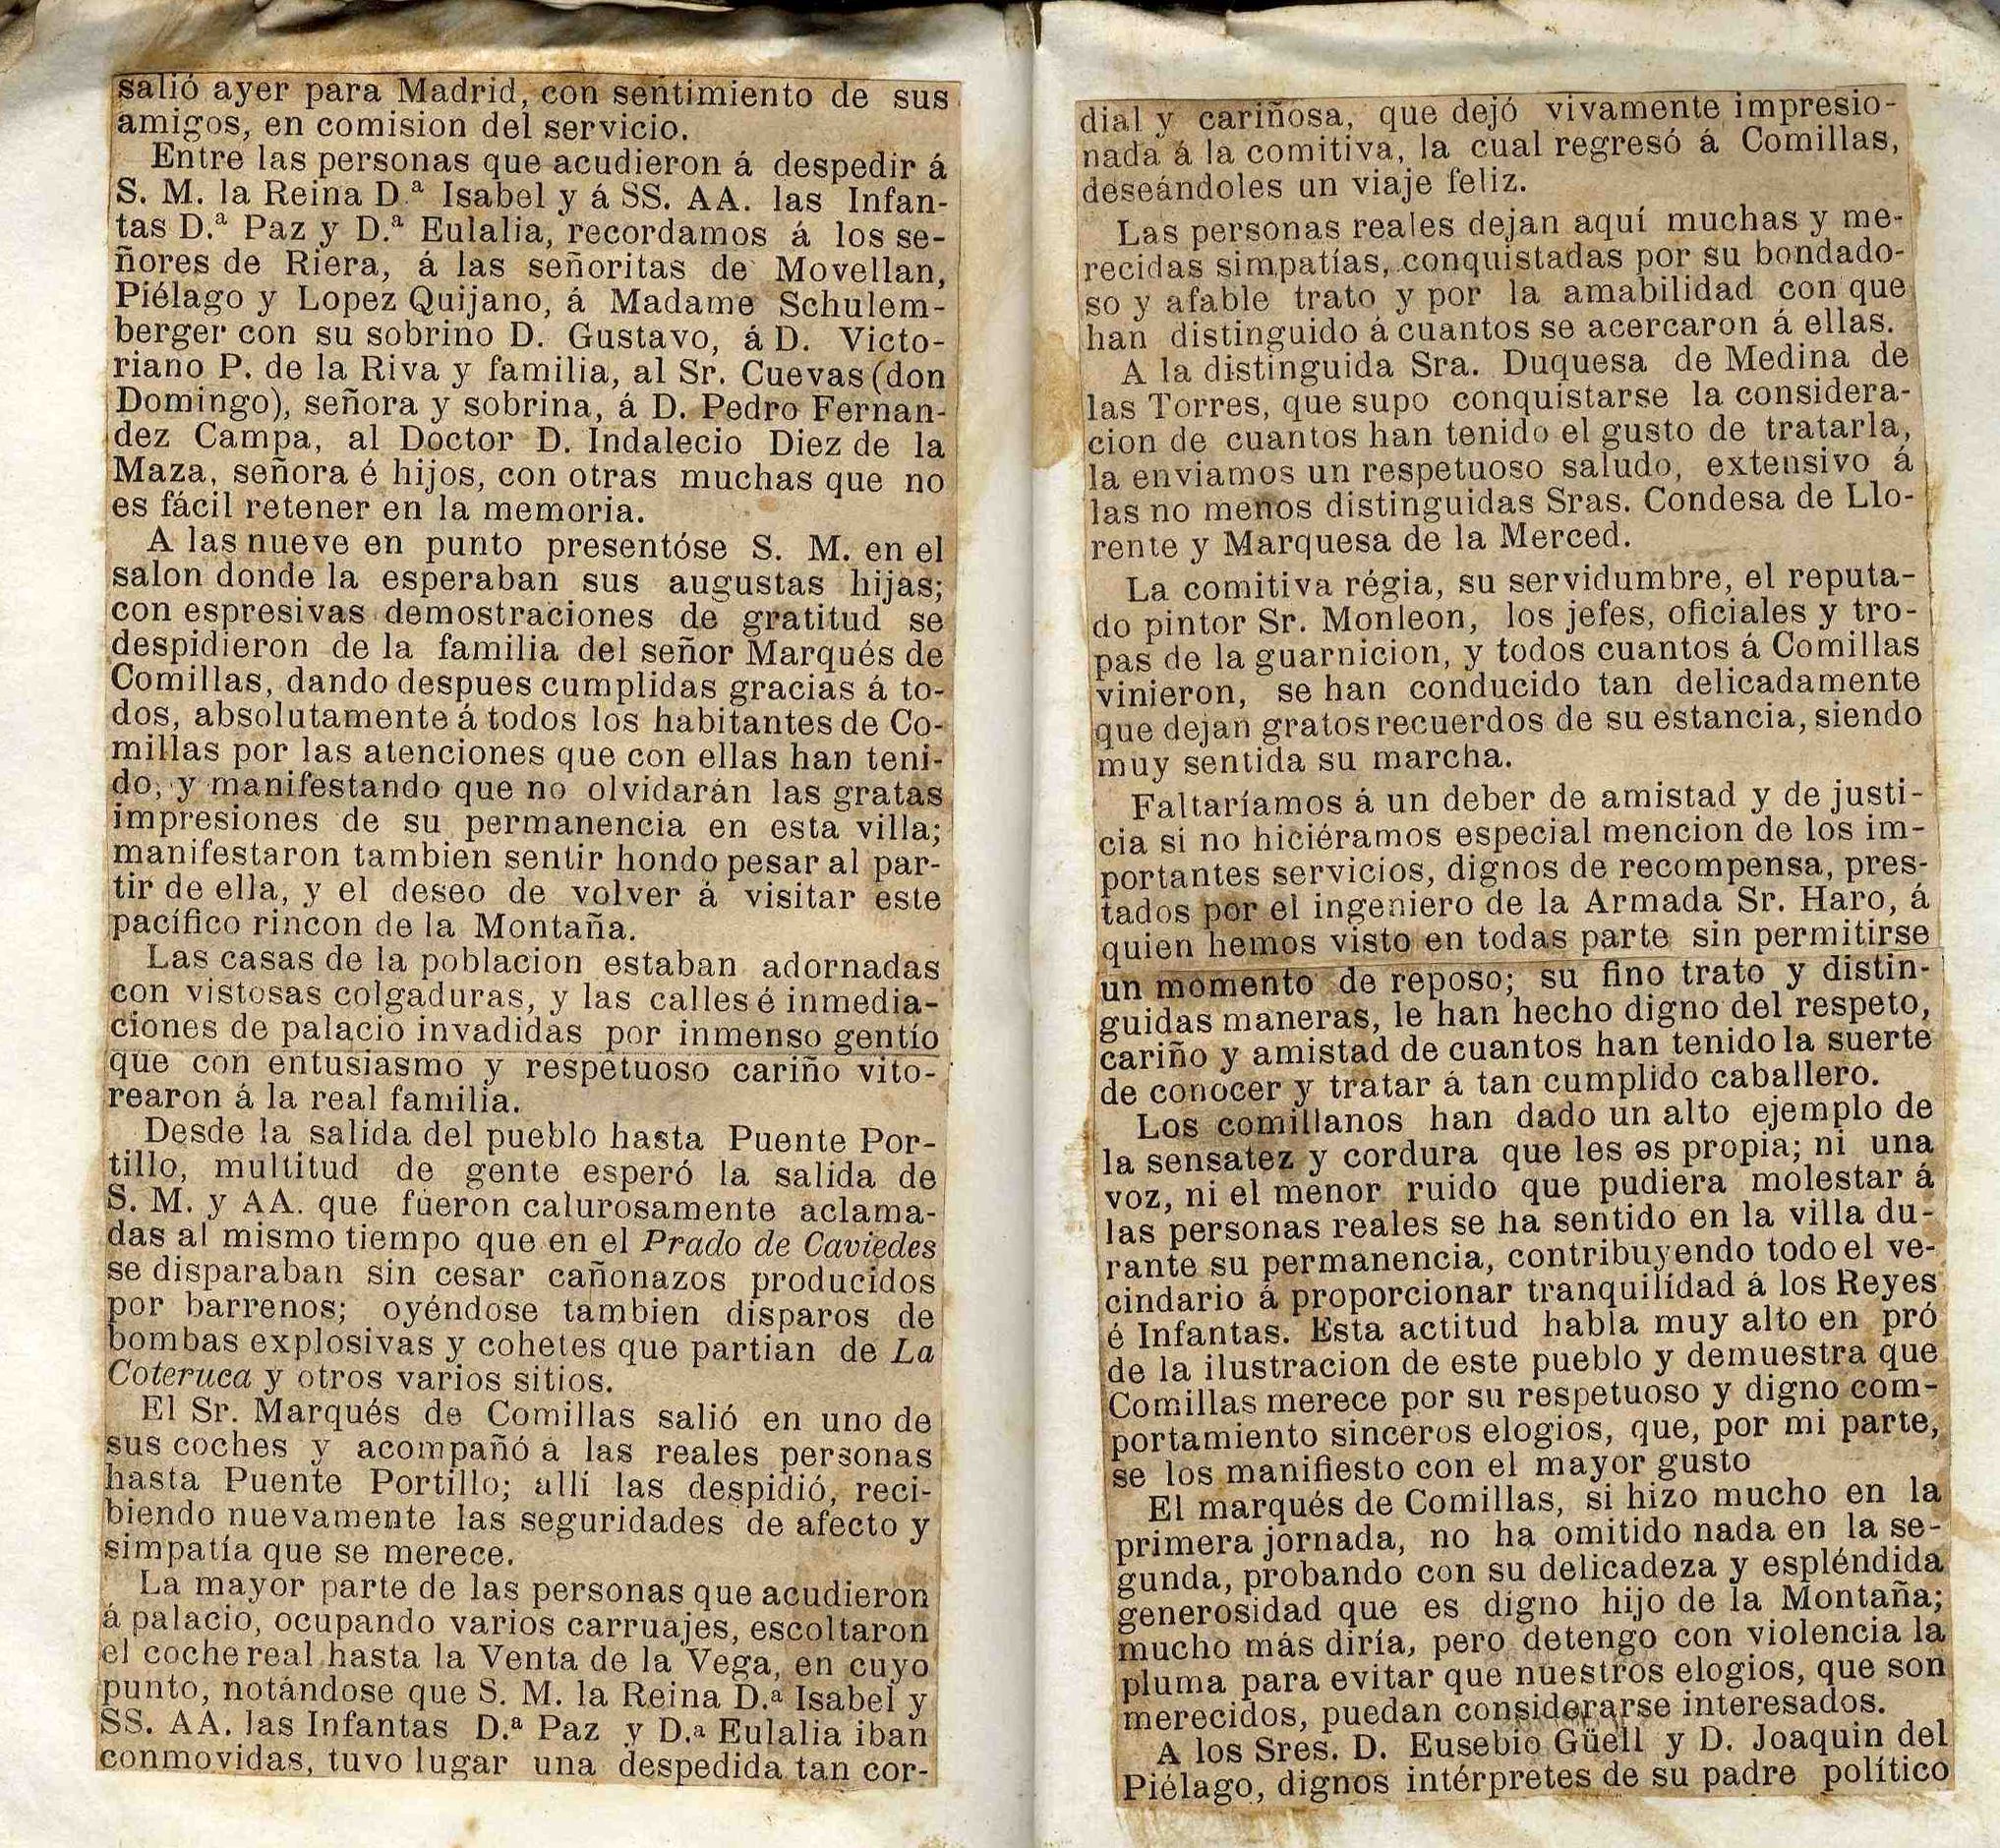 salió ayer para Madrid, con sentimiento de sus
amigos, en comision del servicio.
Entre las personas que acudieron á despedir á
S. M. la Reina D.ª Isabel y á SS. AA. las Infan-
tas D.ª Paz y D.ª Eulalia, recordamos á los se-
ñores de Riera, á las señoritas de Movellan,
Piélago y Lopez Quijano, á Madame Schulem-
berger con su sobrino D. Gustavo, á D. Victo-
riano P. de la Riva y familia, al Sr. Cuevas (don
Domingo), señora y sobrina, á D. Pedro Fernan-
dez Campa, al Doctor D. Indalecio Diez de la
Maza, señora é hijos, con otras muchas que no
es fácil retener en la memoria.
A las nueve en punto presentóse S. M. en el
salon donde la esperaban sus augustas hijas;
con espresivas demostraciones de gratitud se
despidieron de la familia del señor Marqués de
Comillas, dando despues cumplidas gracias á to-
dos, absolutamente á todos los habitantes de Co-
millas por las atenciones que con ellas han teni-
do, y manifestando que no olvidarán las gratas
impresiones de su permanencia en esta villa;
manifestaron tambien sentir hondo pesar al par-
tir de ella, y el deseo de volver á visitar este
pacífico rincon de la Montaña.
Las casas de la poblacion estaban adornadas
con vistosas colgaduras, y las calles é inmedia-
ciones de palacio invadidas por inmenso gentío
que con entusiasmo y respetuoso cariño vito-
rearon á la real familia.
Desde la salida del pueblo hasta Puente Por-
tillo, multitud de gente esperó la salida de
S. M. y AA. que fueron calurosamente aclama-
das al mismo tiempo que en el Prado de Caviedes
se disparaban sin cesar cañonazos producidos
por barrenos; oyéndose tambien disparos de
bombas explosivas y cohetes que partian de La
Coteruca y otros varios sitios.
El Sr. Marqués de Comillas salió en uno de
sus coches y acompañó a las reales personas
hasta Puente Portillo; allí las despidió, reci-
biendo nuevamente las seguridades de afecto y
simpatía que se merece.
La mayor parte de las personas que acudieron
á palacio, ocupando varios carruajes, escoltaron
el coche real hasta la Venta de la Vega, en cuyo
punto, notándose que S. M. la Reina D.ª Isabel y
SS. AA. las Infantas D.ª Paz y D.ª Eulalia iban
conmovidas, tuvo lugar una despedida tan cor-
dial y cariñosa, que dejó vivamente impresio-
nada á la comitiva, la cual regresó á Comillas,
deseándoles un viaje feliz.
Las personas reales dejan aquí muchas y me-
recidas simpatías, conquistadas por su bondado-
so y afable trato y por la amabilidad con que
han distinguido á cuantos se acercaron á ellas.
A la distinguida Sra. Duquesa de Medina de
las Torres, que supo conquistarse la considera-
cion de cuantos han tenido el gusto de tratarla,
la enviamos un respetuoso saludo, extensivo á
las no menos distinguidas Sras. Condesa de Llo-
rente y Marquesa de la Merced.
La comitiva régia, su servidumbre, el reputa-
do pintor Sr. Monleon, los jefes, oficiales y tro-
pas de la guarnicion, y todos cuantos á Comillas
vinieron, se han conducido tan delicadamente
que dejan gratos recuerdos de su estancia, siendo
muy sentida su marcha.
Faltaríamos á un deber de amistad y de justi-
cia si no hiciéramos especial mencion de los im-
portantes servicios, dignos de recompensa, pres-
tados por el ingeniero de la Armada Sr. Haro, á
quien hemos visto en todas parte sin permitirse
un momento de reposo; su fino trato y distin-
guidas maneras, le han hecho digno del respeto,
cariño y amistad de cuantos han tenido la suerte
de conocer y tratar á tan cumplido caballero.
Los comillanos han dado un alto ejemplo de
la sensatez y cordura que les es propia; ni una
voz, ni el menor ruido que pudiera molestar á
las personas reales se ha sentido en la villa du-
rante su permanencia, contribuyendo todo el ve-
cindario á proporcionar tranquilídad á los Reyes
é Infantas. Esta actitud habla muy alto en pró
de la ilustracion de este pueblo y demuestra que
Comillas merece por su respetuoso y digno com-
portamiento sinceros elogios, que, por mi parte,
se los manifiesto con el mayor gusto
El marqués de Comillas, si hizo mucho en la
primera jornada, no ha omitido nada en la se-
gunda, probando con su delicadeza y espléndida
generosidad que es digno hijo de la Montaña;
mucho más diría, pero detengo con violencia la
pluma para evitar que nuestros elogios, que son
merecidos, puedan considerarse interesados.
A los Sres. D. Eusebio Güell y D. Joaquin del
Piélago, dignos intérpretes de su padre político